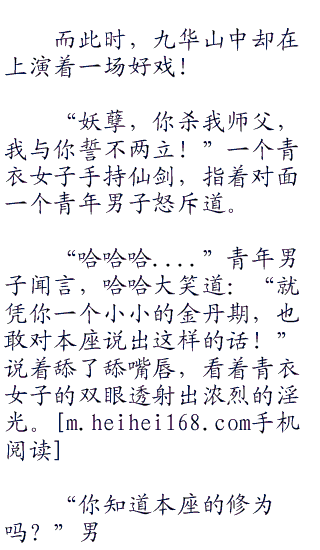 而此时，九华山中却在
上演着一场好戏！
“妖孽，你杀我师父，
我与你誓不两立！”一个青
衣女子手持仙剑，指着对面
一个青年男子怒斥道。
“哈哈哈....”青年男
子闻言，哈哈大笑道：“就
凭你一个小小的金丹期，也
敢对本座说出这样的话！”
说着舔了舔嘴唇，看着青衣
女子的双眼透射出浓烈的淫
光。[m.heihei168.com手机
阅读]
“你知道本座的修为
吗？”男